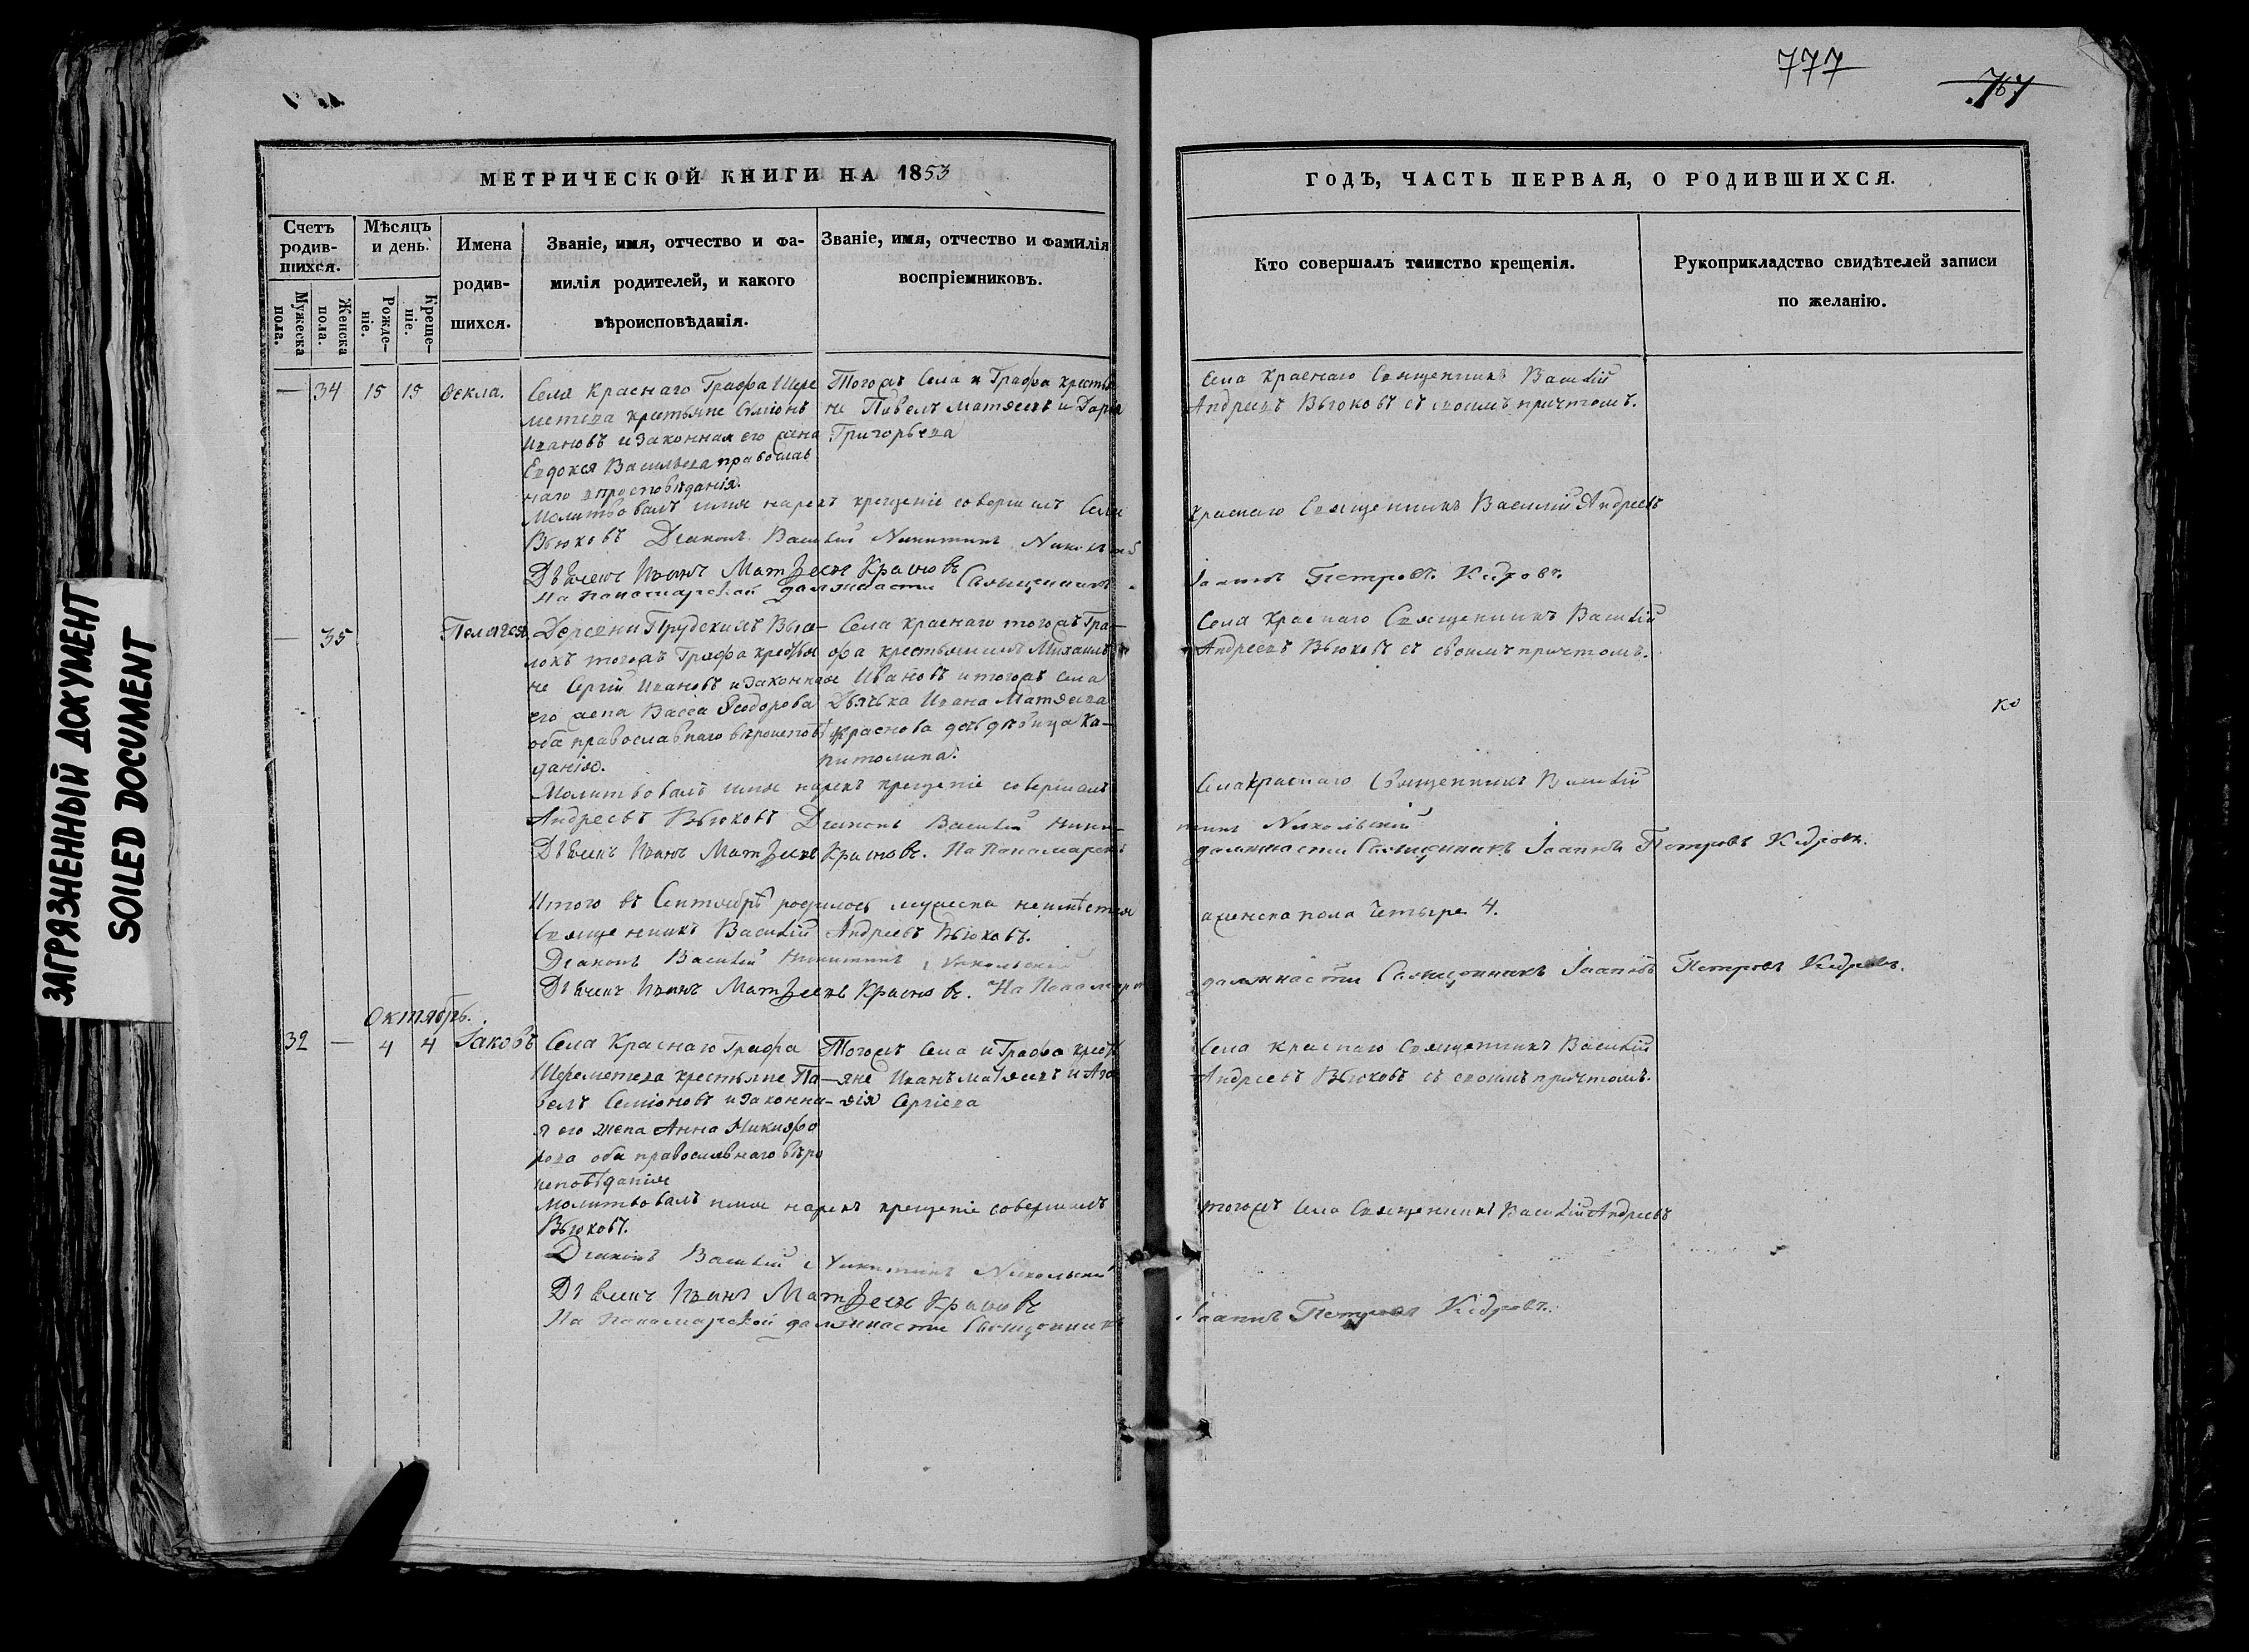 ЗАГРЯЗНЕННЫЙ ДОКУМЕНТ
SOILED DOCUMENT
МЕТРИЧЕСКОЙ КНИГИ НА 1853
Счетъ родив-шихся.
Мужеска пола.
Женска пола.
Мѣсяцъ и день.
Рожде-ніе.
Креще-ніе.
Имена родив-шихся.
Званіе, имя, отчество и фа-
милія родителей, и какого
вѣроисповѣданія.
Званіе, имя, отчество и фамилія
воспріемниковъ.
— 34 15 15 Ѳекла.
Села Краснаго Графа Шере
метева крестьяне Симіонъ
Ивановъ и законная его жена
Евдокія Васильева православ
наго вѣроисповѣданія.
Тогожъ Села и Графа крестья
не Павелъ Матвеевъ и Дарья
Григорьева
Молитвовалъ имя нарекъ крещеніе совершилъ Села
Вьюковъ Діаконъ Василій Никитинъ
Дьячекъ Иванъ Матвеевъ Красновъ
На Пономарской должности Священникъ
— 35 Пелагея
Деревни Прудскихъ Высе-
локъ тогожъ Графа крестья
не Сергій Ивановъ и законная
его жена Васса Ѳеодорова
оба православнаго вѣроисповѣ
данія.
Села Краснаго тогожъ Гра-
фа крестьянинъ Михаилъ
Ивановъ и тогожъ села
Дьячька Ивана Матвеева
Краснова дочь девица Ка-
питолина.
Молитвовалъ имя нарекъ крещеніе совершилъ
Андреевъ Вьюковъ Діаконъ Василій Ники-
Дьячекъ Иванъ Матвеевъ Красновъ. На Пономарской
Итого въ Сентябрѣ родилось мужеска неимѣется
Священникъ Василій Андреевъ Вьюковъ.
Діаконъ Василій Никитинъ Никольскій
Дьячекъ Иванъ Матвеевъ Красновъ. На Пономарс
Октябрь.
32 — 4 4 Іаковъ
Села Краснаго Графа
Шереметева крестьяне Па-
велъ Семіоновъ и законна-
я его жена Анна Никифо
рова оба православнаго вѣро
исповѣданія
Тогожъ Села и Графа кресть
яне Иванъ Матвеевъ и Ага
ѳія Сергіева
Молитвовалъ имя нарекъ крещеніе совершилъ
Вьюковъ.
Діаконъ Василій Никитинъ Никольскій
Дьячекъ Иванъ Матвеевъ Красновъ
На Пономарской должности Священникъ
777
767
ГОДЪ, ЧАСТЬ ПЕРВАЯ, О РОДИВШИХСЯ.
Кто совершалъ таинство крещенія.
Рукоприкладство свидѣтелей записи
по желанію.
Села Краснаго Священникъ Василій
Андреевъ Вьюковъ съ своимъ причтомъ.
Краснаго Священникъ Василій Андреевъ
Іоаннъ Петровъ Кедровъ.
Села Краснаго Священникъ Василій
Андреевъ Вьюковъ съ своимъ причтомъ.
ко
Села Краснаго Священникъ Василій
тинъ Никольскій
должности Священникъ Іоаннъ Петровъ Кедровъ.
а женска пола Четыре 4.
должности Священникъ Іоаннъ Петровъ Кедровъ.
Села Краснаго Священникъ Василій
Андреевъ Вьюковъ съ своимъ причтомъ.
тогожъ Села Священникъ Василій Андреевъ
Іоаннъ Петровъ Кедровъ.